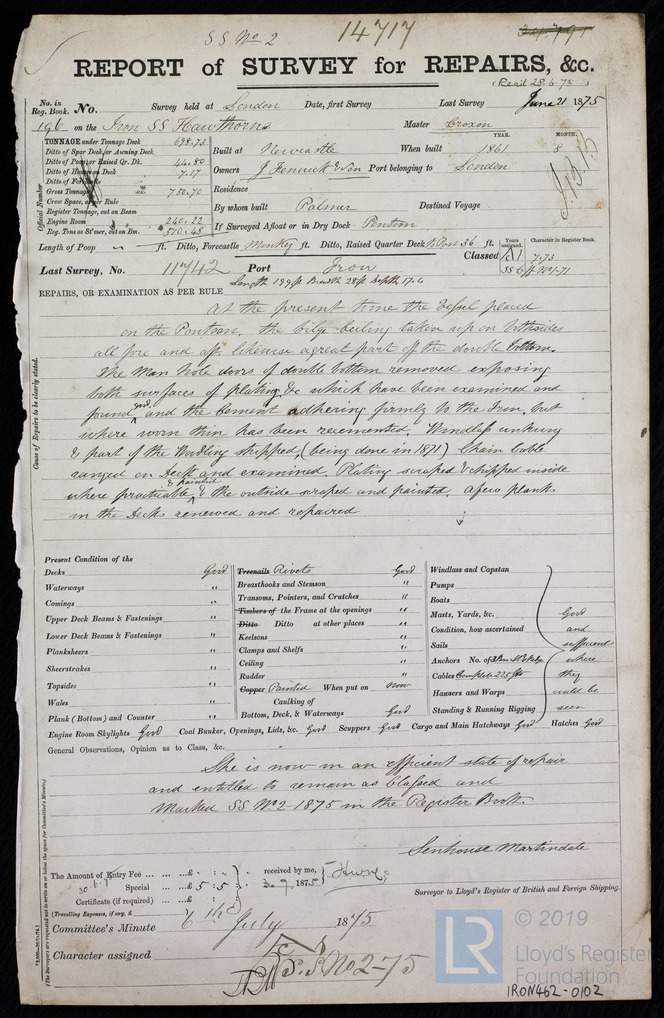 SS No 2
14717
REPORT of SURVEY for REPAIRS, &c.
(Recd 28.6.75)
No. in Reg. Book. No. Survey held at London Date, first Survey Last Survey June 21 1875
196 on the Iron SS Hawthorns Master Croxon
TONNAGE under Tonnage Deck 698.73
Ditto of Spar Deck, or Awning Deck
Ditto of Poop or Raised Qr. Dk. 44.80
Ditto of House on Deck 7.17
Ditto of Forecastle
Gross Tonnage 750.70
Crew Space, as per Rule
Register Tonnage, cut on Beam
Engine Room 240.22
Reg. Tons as St'mer, cut on Bm. 510.48
Official Number
YEAR. MONTH.
Built at Newcastle When built 1861 8
Owners J Fenwick & Son Port belonging to London
Residence
By whom built Palmer Destined Voyage
If Surveyed Afloat or in Dry Dock Pontoon
Length of Poop ft. Ditto, Forecastle Monkey ft. Ditto, Raised Quarter Deck ft.
Years assigned. Character in Register Book.
Classed A1 7.73
Last Survey, No. 11742 Port Iron
Length 199ft Breadth 28ft Depth 17.6
REPAIRS, OR EXAMINATION AS PER RULE
Cause of Repairs to be clearly stated.
At the present time the Vessel placed
on the Pontoon. the bilge ceiling taken up on both sides
all fore and aft, likewise a great part off the double bottom.
The Man hole doors of double bottom removed exposing
both surfaces of plating &c which have been examined and
found good and the Cement adhering firmly to the Iron, but
where worn thin has been recemented. Windlass unhung
& part of the Wood lng stripped, (being done in 1871) Chain Cable
ranged on Deck and examined. Plating scraped & chipped inside
where practicable & painted & the outside scraped and painted. a few planks
in the Decks renewed and repaired
Present Condition of the
Decks Good
Waterways "
Comings "
Upper Deck Beams & Fastenings "
Lower Deck Beams & Fastenings "
Planksheers "
Sheerstrakes "
Topsides "
Wales "
Plank (Bottom) and Counter "
Treenails Rivets Good
Breasthooks and Stemson "
Transoms, Pointers, and Crutches "
Timbers of the Frame at the openings "
Ditto Ditto at other places "
Keelsons "
Clamps and Shelfs "
Ceiling "
Rudder "
Copper Painted When put on now
Caulking of
Bottom, Deck, & Waterways Good
Windlass and Capstan
Pumps
Boats
Masts, Yards, &c. Good
Condition, how ascertained and
Sails sufficient
Anchors No. of where
Cables Complete 225 fths they
Hawsers and Warps could be
Standing & Running Rigging seen
Engine Room Skylights Good Coal Bunker, Openings, Lids, &c. Good Scuppers Good Cargo and Main Hatchways Good Hatches Good
General Observations, Opinion as to Class, &c.
She is now in an efficient state of repair
and entitled to remain as Classed and
Marked SS No 2-1875 in the Register Book.
Senhouse Martindale
Surveyor to Lloyd's Register of British and Foreign Shipping.
The Amount of Entry Fee ... ...£ : : received by me,
30.6.7 Special ... ...£ 5 : 5 : 3.7.1875
Certificate (if required) ... £ : :
(Travelling Expenses, if any, £
Committee's Minute 6th July 1875
Character assigned S.S No 2-75
(The Surveyors are requested not to write on or below the space for Committee's Minute.)
LR © 2019
Lloyd's Register
Foundation
IRON462-0102